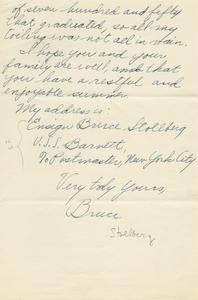 of seven hundred and fifty
that graduated, so all my
toiling was not all in vain.
I hope you and your
family are well, and that
you have a restful and
enjoyable summer.
My address is:
Ensign Bruce Stollberg
U.S.S. Barnett,
℅ Postmaster, New York City
Very truly Yours,
Bruce
Stolberg